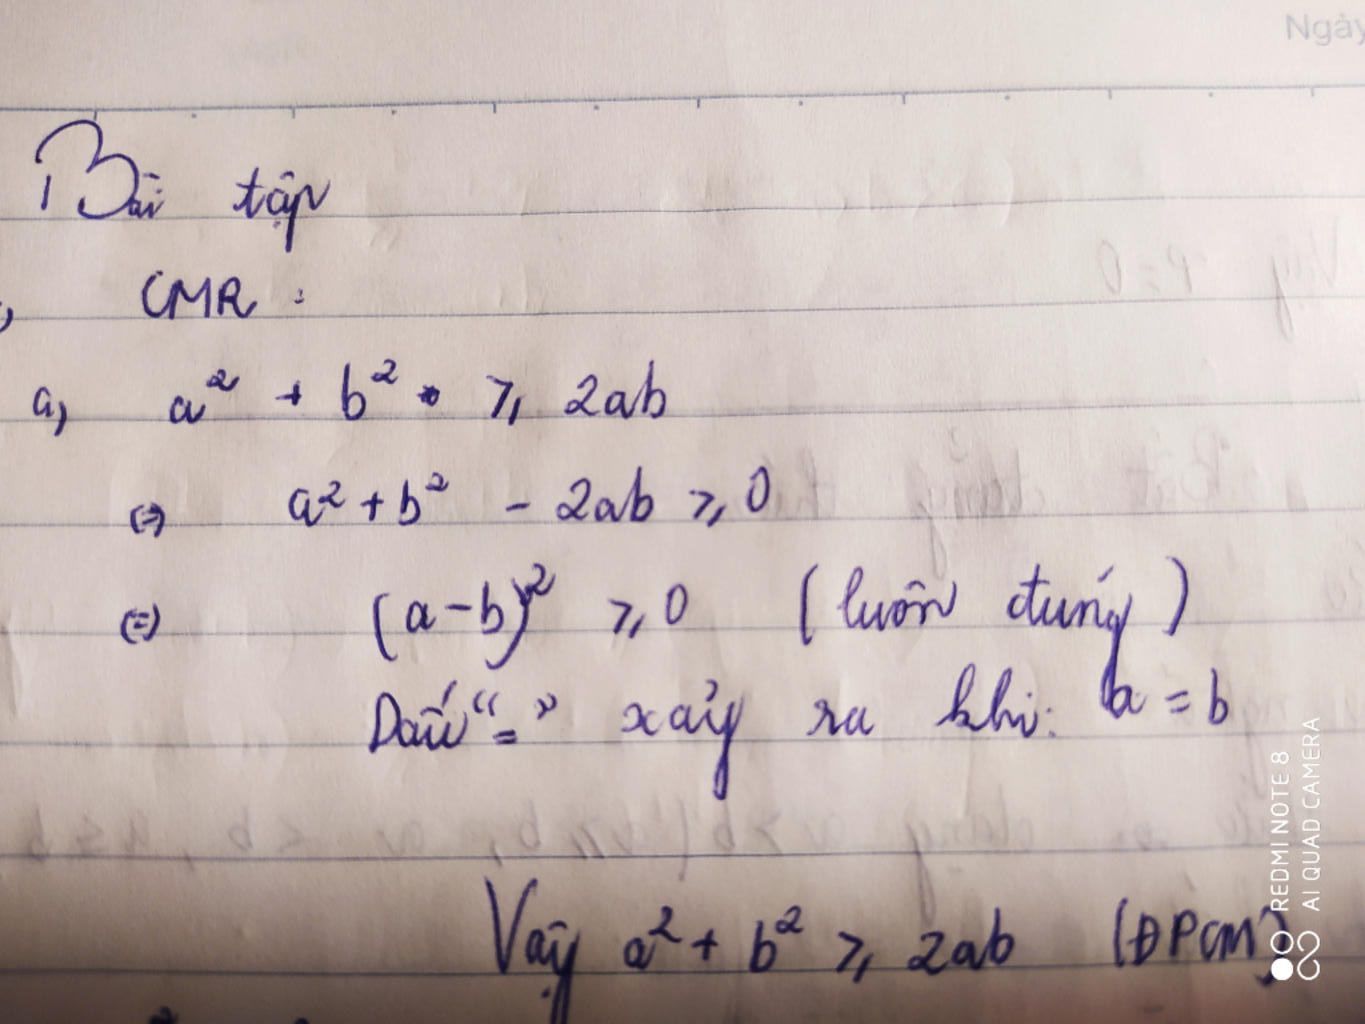 Ngày
Bài tập
CMR :
a, a² + b² ≥ 2ab
(=) a² + b² - 2ab ≥ 0
(=) (a-b)² ≥ 0 (luôn đúng)
Dấu “=” xảy ra khi: a = b
Vậy a² + b² ≥ 2ab (ĐPCM)
REDMI NOTE 8
AI QUAD CAMERA